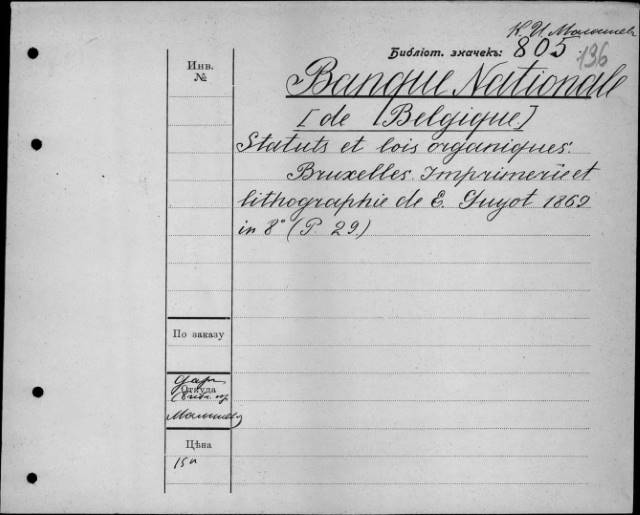 К. И. Малышев
Библіот. значекъ: 805 136
Инв.
№
Banque Nationale
[de Belgique]
Statuts et lois organiques.
Bruxelles. Imprimerie et
lithographie de E. Guyot 1869
in 8° (P. 29.)
По заказу
даръ
Откуда
Малышева
Цѣна
15к